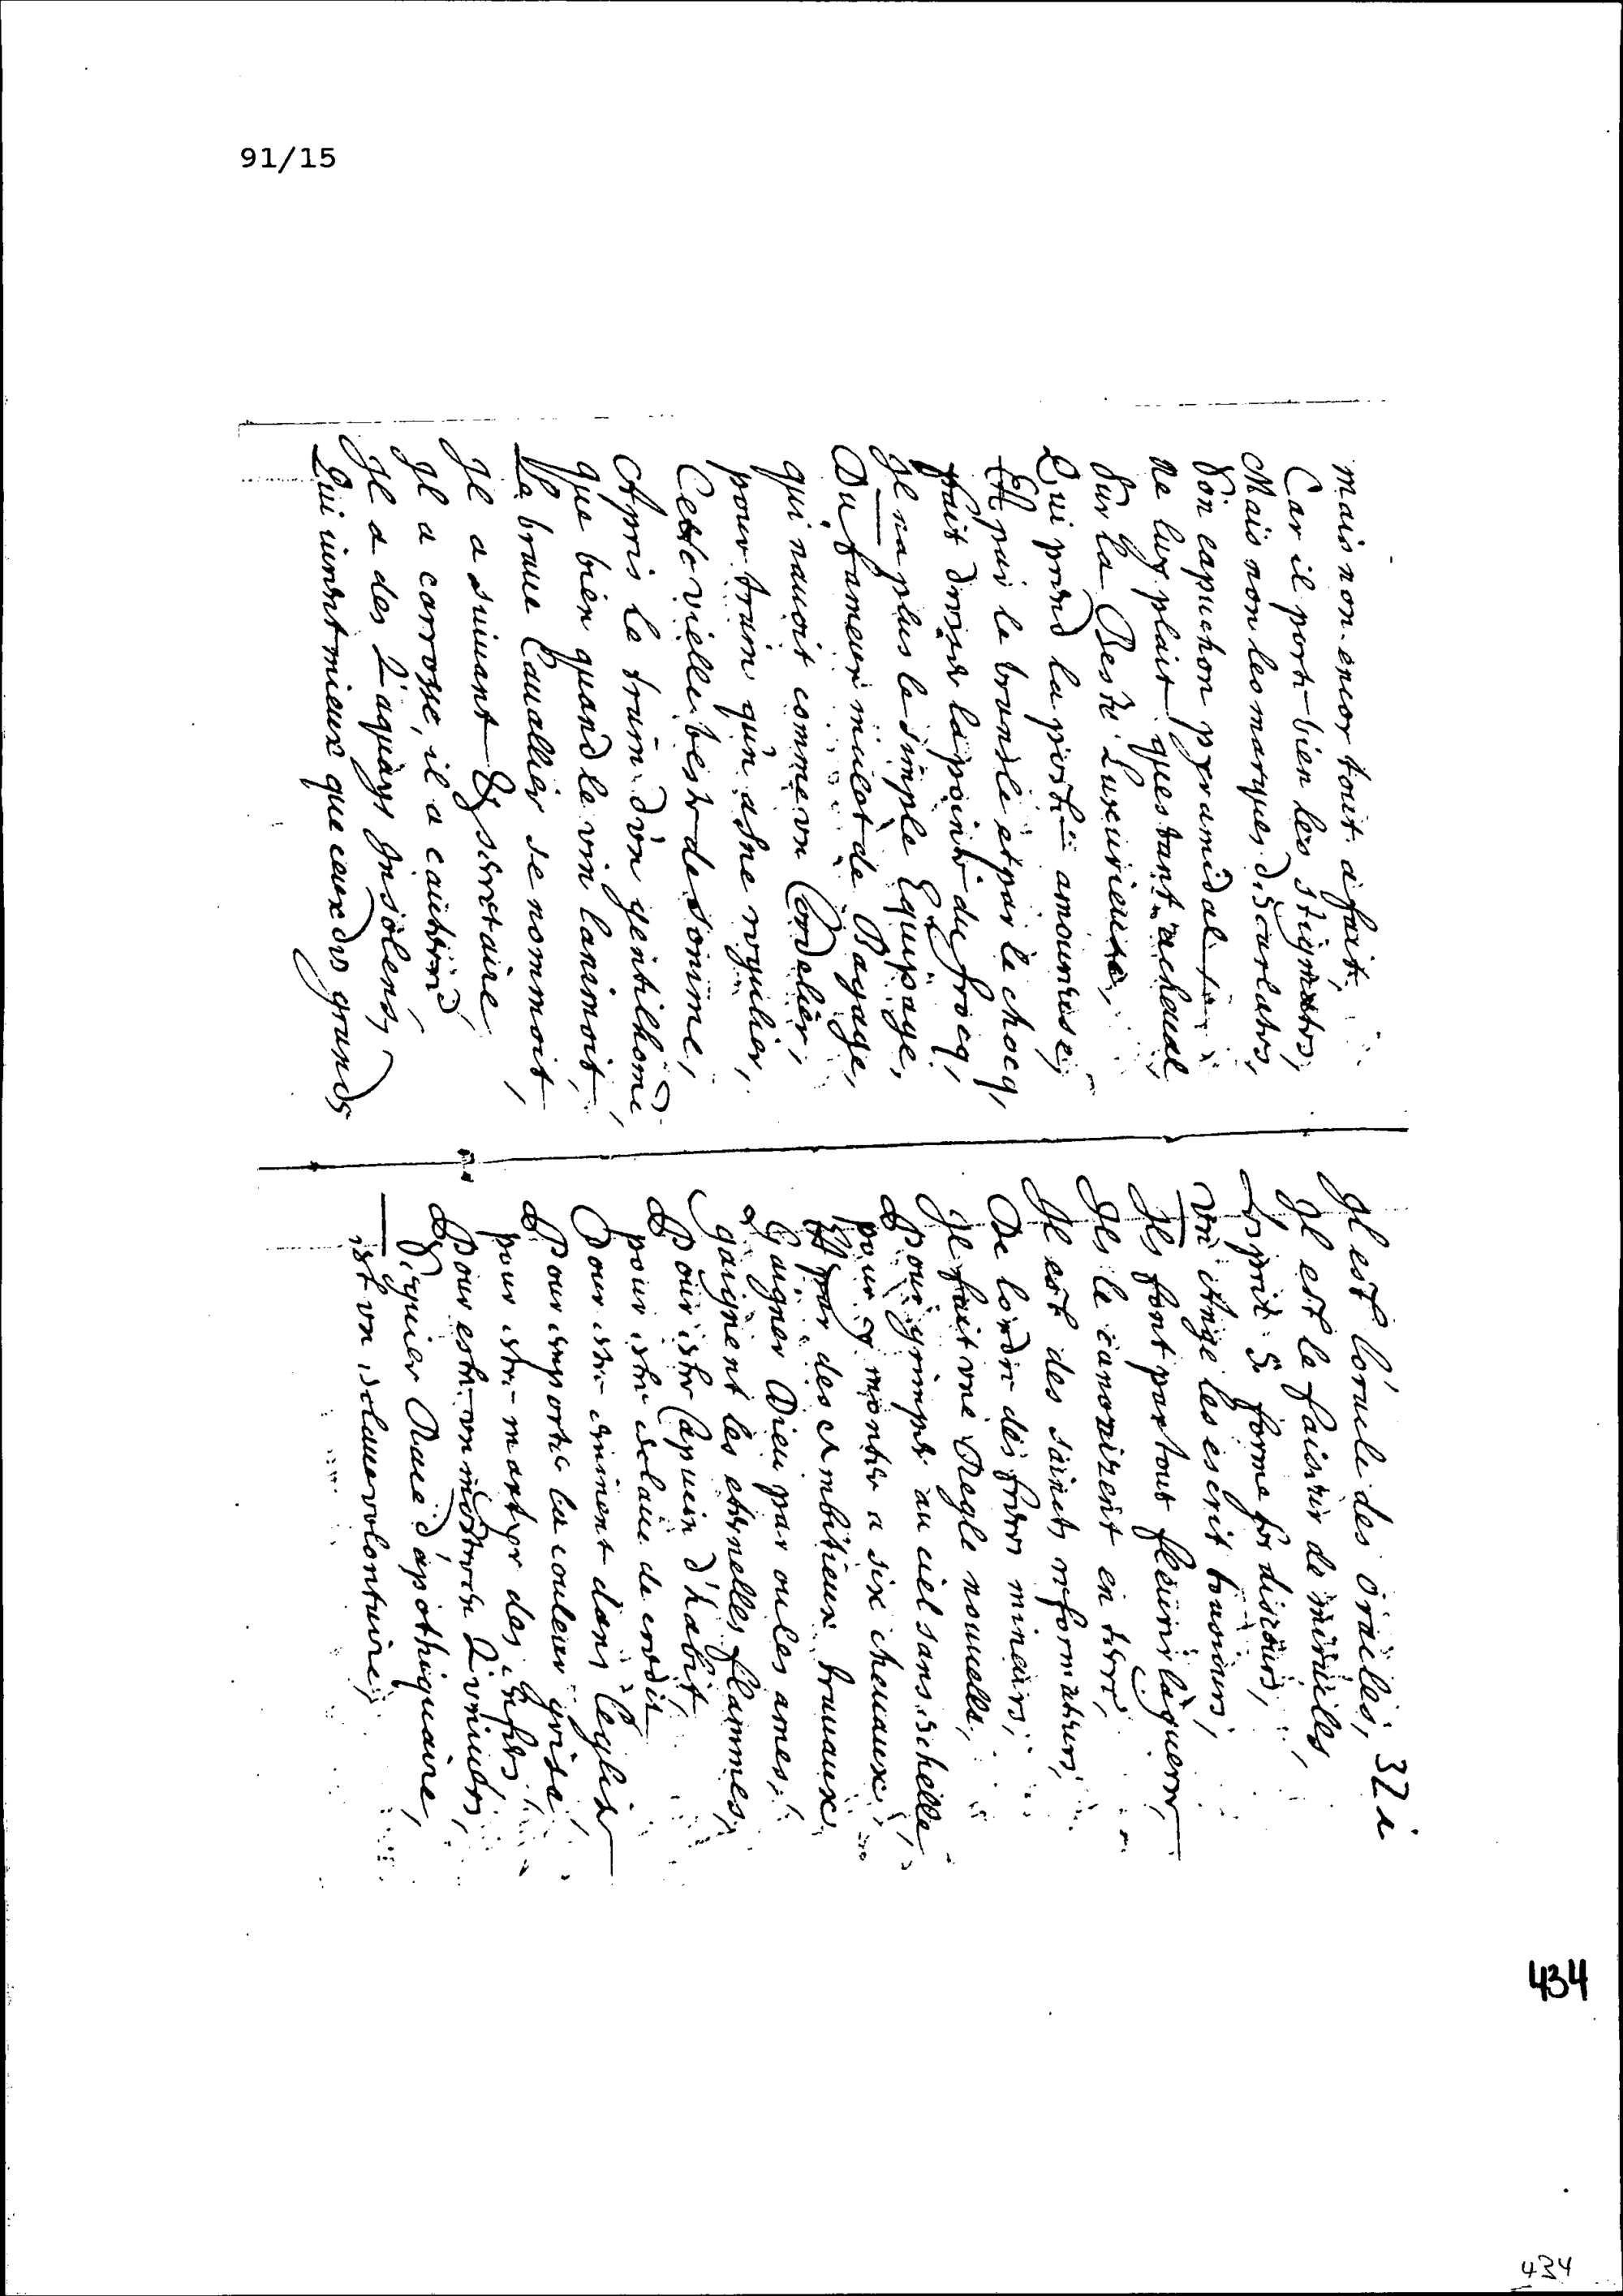 91/15
mais non encor tout a fait,
Car il porte bien les stigmates,
Mais non les marques discarlates,
Son capuchon pyramidal
Ne luy plaist questant a cheual
Sur la Beste Luxurieuse,
Qui prend la posture amoureuse,
Et puis le bransle et par le chocq,
fait dresser la pointe du frocq,
Il na plus le simple Equipage,
Du fameux mulet de Bagage,
qui nauoit comme vn Cordelier,
pour train qu'n asne regulier,
Cette vielle beste de somme,
Apris le train d'vn gentilhome
que bien quand le vin lanimoit,
Le braue Cauallier se nommoit,
Il a suiuant & secretaire
Il a carrosse, il a
Il a des Laquays Insolens,
Qui uiuent mieux que ceux des grands
32i
Il est l'oracle des oracles,
Il est le faiseur de miracles
Lesprit St forme ses discours,
vn Ange les escrit tousiours,
Ils font partout fleurir la guerre,
Ils le canonizent en terre,
Il est des saincts reformateurs,
De lordre des freres mineurs,
Il fait vne Regle nouuelle,
Pour grimper au ciel sans eschelle
pour y monter a six cheuaux,
Et par des Ambitieux trauaux,
Gaigner Dieu par ou les ames,
gaignent les eternelles flammes,
Pour estre Capucin d'habit,
pour estre esclaue de credit
Pour estre eminent dans leglise
Pour emporter la couleur grise,
pour estre martyr des
Pour estre vn monstre
Figuier Raue d'apothiquaire,
est vn esclaue volontaire,
434
434